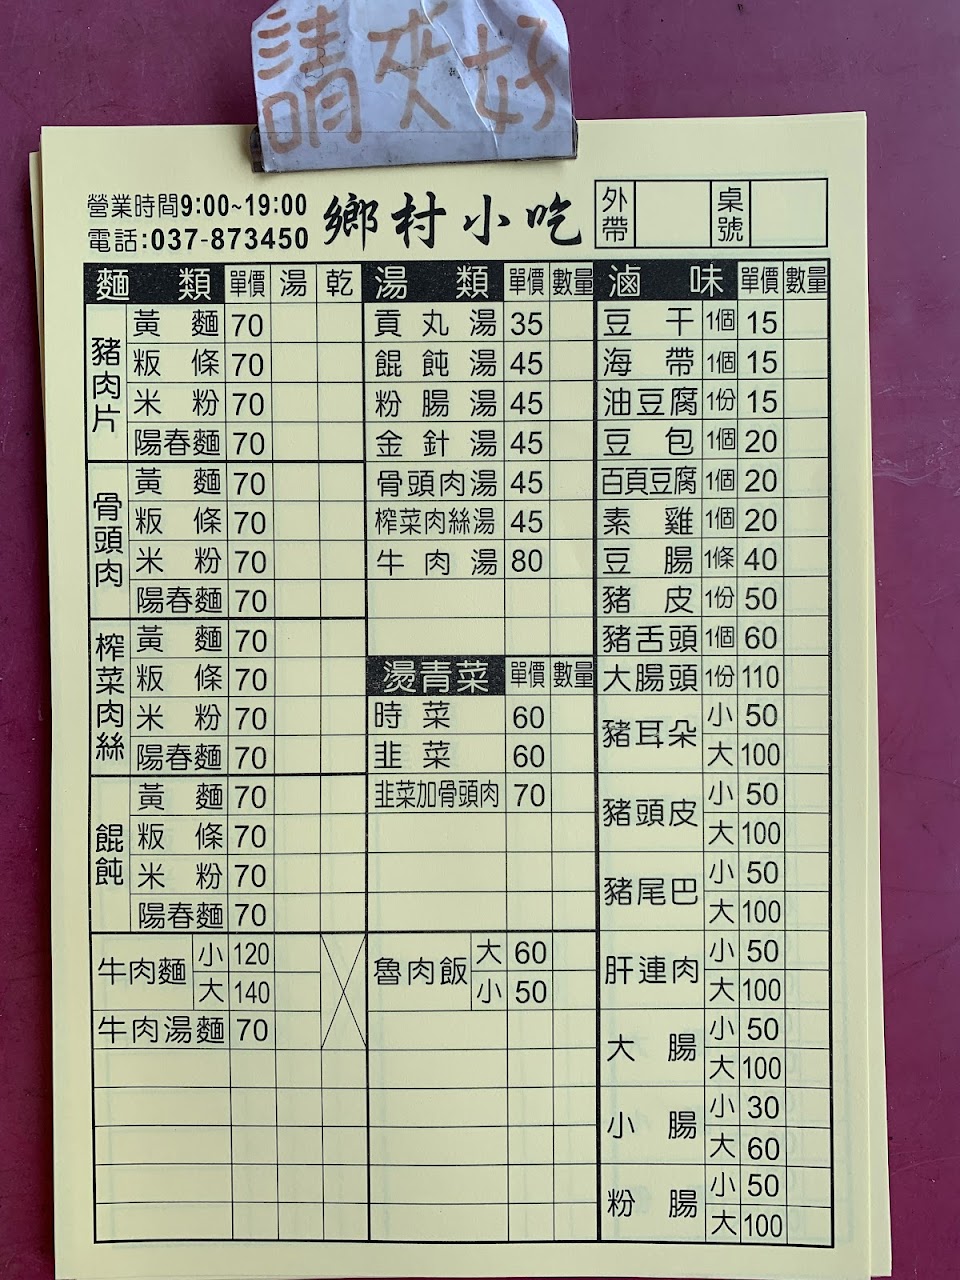 請夾好
營業時間9:00~19:00
電話:037-873450
鄉村小吃
外帶
桌號
麵類 單價 湯 乾
豬肉片
黃麵 70
粄條 70
米粉 70
陽春麵 70
骨頭肉
黃麵 70
粄條 70
米粉 70
陽春麵 70
榨菜肉絲
黃麵 70
粄條 70
米粉 70
陽春麵 70
餛飩
黃麵 70
粄條 70
米粉 70
陽春麵 70
牛肉麵
小 120
大 140
牛肉湯麵 70
湯類 單價 數量
貢丸湯 35
餛飩湯 45
粉腸湯 45
金針湯 45
骨頭肉湯 45
榨菜肉絲湯 45
牛肉湯 80
燙青菜 單價 數量
時菜 60
韭菜 60
韭菜加骨頭肉 70
魯肉飯
大 60
小 50
滷味 單價 數量
豆干 1個 15
海帶 1個 15
油豆腐 1份 15
豆包 1個 20
百頁豆腐 1個 20
素雞 1個 20
豆腸 1條 40
豬皮 1份 50
豬舌頭 1個 60
大腸頭 1份 110
豬耳朵
小 50
大 100
豬頭皮
小 50
大 100
豬尾巴
小 50
大 100
肝連肉
小 50
大 100
大腸
小 50
大 100
小腸
小 30
大 60
粉腸
小 50
大 100